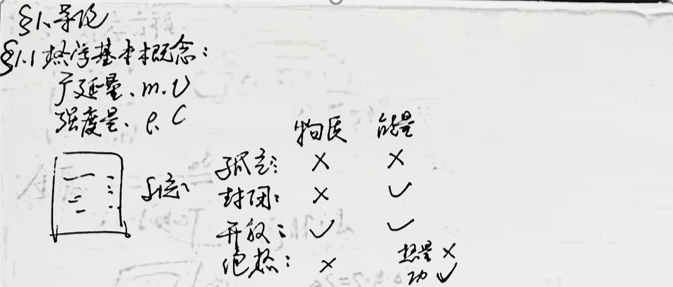 §1. 导论
§1.1 热学基本概念：
广延量、m. U
强度量、ρ. C
物质 能量
孤立： × ×
系统： 
封闭： × ✓
开放： ✓ ✓
绝热： × 热量 ×
功 ✓